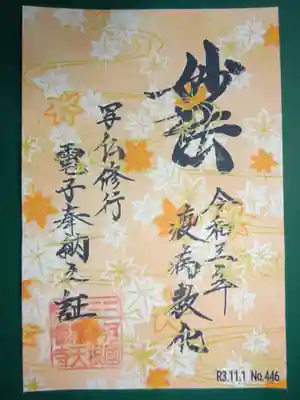 妙法
令和三年
疫病敷化
写仏修行
電子奉納之証
R3.11.1 No.446